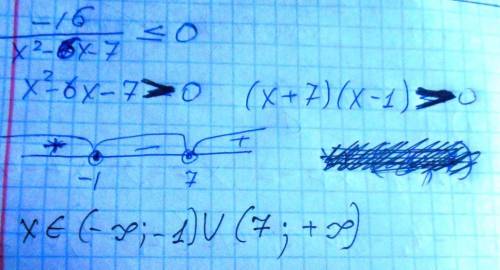 -16 / (x²-6x-7) ≤ 0
x²-6x-7 > 0 (x+7)(x-1) > 0
+ - +
-1 7
x ∈ (-∞; -1) ∪ (7; +∞)